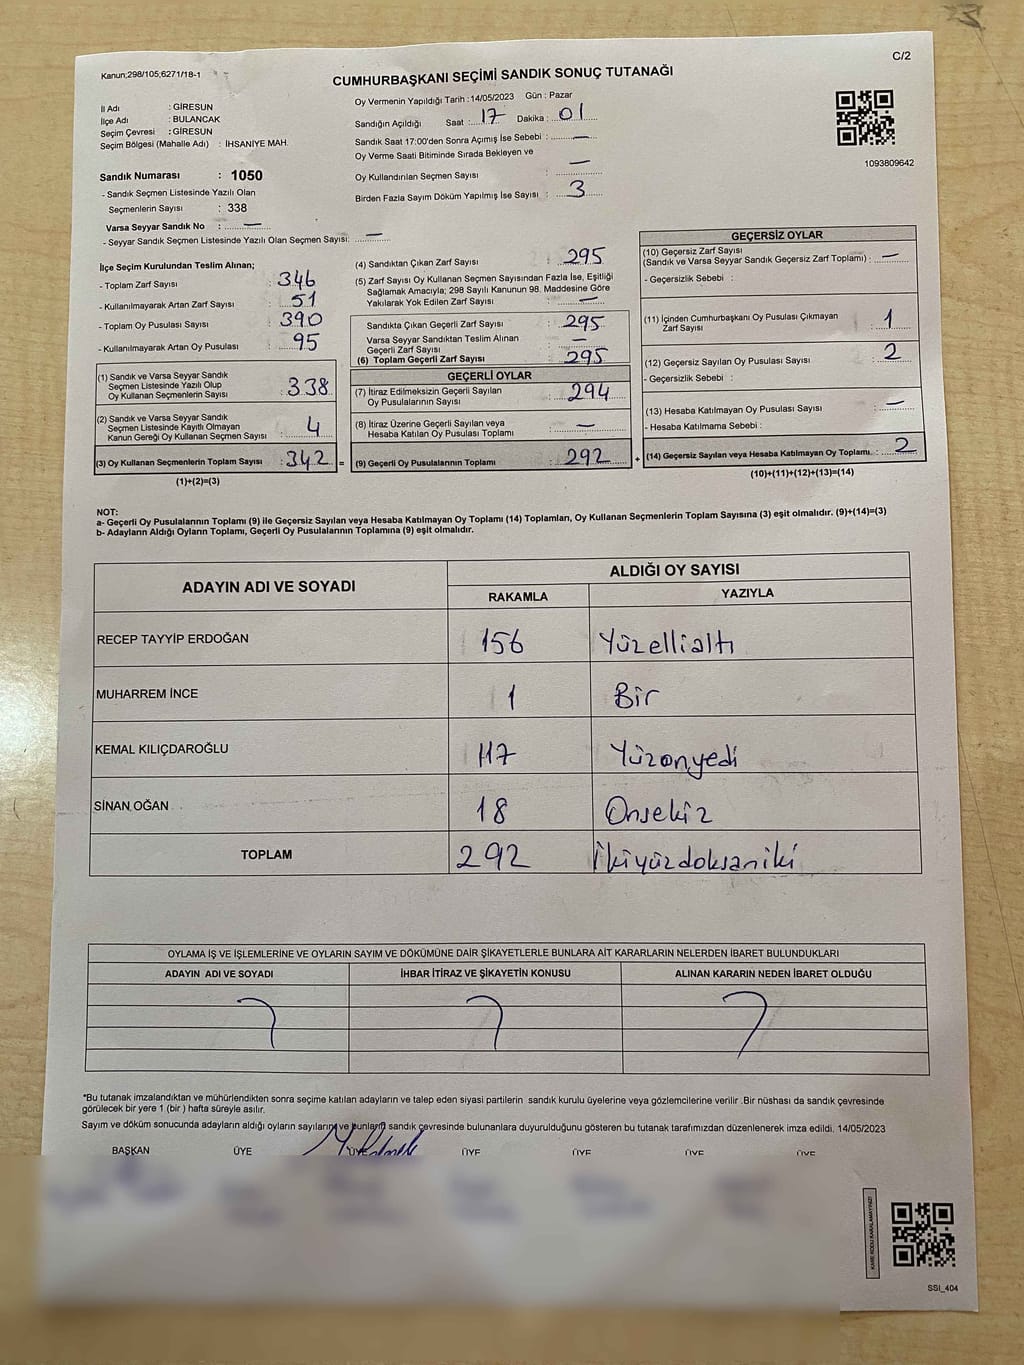 Kanun;298/105;6271/18-1
C/2
CUMHURBAŞKANI SEÇİMİ SANDIK SONUÇ TUTANAĞI
İl Adı : GİRESUN
İlçe Adı : BULANCAK
Seçim Çevresi : GİRESUN
Seçim Bölgesi (Mahalle Adı) : İHSANİYE MAH.
Sandık Numarası : 1050
- Sandık Seçmen Listesinde Yazılı Olan
Seçmenlerin Sayısı : 338
Varsa Seyyar Sandık No : —
- Seyyar Sandık Seçmen Listesinde Yazılı Olan Seçmen Sayısı: —
Oy Vermenin Yapıldığı Tarih :14/05/2023 Gün : Pazar
Sandığın Açıldığı Saat : 17 Dakika : 01
Sandık Saat 17:00'den Sonra Açımış İse Sebebi : —
Oy Verme Saati Bitiminde Sırada Bekleyen ve
Oy Kullandırılan Seçmen Sayısı : —
Birden Fazla Sayım Döküm Yapılmış İse Sayısı : 3
1093809642
İlçe Seçim Kurulundan Teslim Alınan;
- Toplam Zarf Sayısı : 346
- Kullanılmayarak Artan Zarf Sayısı : 51
- Toplam Oy Pusulası Sayısı : 390
- Kullanılmayarak Artan Oy Pusulası : 95
(1) Sandık ve Varsa Seyyar Sandık
Seçmen Listesinde Yazılı Olup
Oy Kullanan Seçmenlerin Sayısı : 338
(2) Sandık ve Varsa Seyyar Sandık
Seçmen Listesinde Kayıtlı Olmayan
Kanun Gereği Oy Kullanan Seçmen Sayısı : 4
(3) Oy Kullanan Seçmenlerin Toplam Sayısı : 342 =
(1)+(2)=(3)
(4) Sandıktan Çıkan Zarf Sayısı : 295
(5) Zarf Sayısı Oy Kullanan Seçmen Sayısından Fazla İse, Eşitliği
Sağlamak Amacıyla; 298 Sayılı Kanunun 98. Maddesine Göre
Yakılarak Yok Edilen Zarf Sayısı : —
Sandıkta Çıkan Geçerli Zarf Sayısı : 295
Varsa Seyyar Sandıktan Teslim Alınan
Geçerli Zarf Sayısı : —
(6) Toplam Geçerli Zarf Sayısı : 295
GEÇERLİ OYLAR
(7) İtiraz Edilmeksizin Geçerli Sayılan
Oy Pusulalarının Sayısı : 294
(8) İtiraz Üzerine Geçerli Sayılan veya
Hesaba Katılan Oy Pusulası Toplamı : —
(9) Geçerli Oy Pusulalarının Toplamı : 292 +
GEÇERSİZ OYLAR
(10) Geçersiz Zarf Sayısı
(Sandık ve Varsa Seyyar Sandık Geçersiz Zarf Toplamı) : —
- Geçersizlik Sebebi :
(11) İçinden Cumhurbaşkanı Oy Pusulası Çıkmayan
Zarf Sayısı : 1
(12) Geçersiz Sayılan Oy Pusulası Sayısı : 2
- Geçersizlik Sebebi :
(13) Hesaba Katılmayan Oy Pusulası Sayısı : —
- Hesaba Katılmama Sebebi :
(14) Geçersiz Sayılan veya Hesaba Katılmayan Oy Toplamı. : 2
(10)+(11)+(12)+(13)=(14)
NOT:
a- Geçerli Oy Pusulalarının Toplamı (9) ile Geçersiz Sayılan veya Hesaba Katılmayan Oy Toplamı (14) Toplamları, Oy Kullanan Seçmenlerin Toplam Sayısına (3) eşit olmalıdır. (9)+(14)=(3)
b- Adayların Aldığı Oyların Toplamı, Geçerli Oy Pusulalarının Toplamına (9) eşit olmalıdır.
ADAYIN ADI VE SOYADI
ALDIĞI OY SAYISI
RAKAMLA YAZIYLA
RECEP TAYYİP ERDOĞAN 156 Yüzellialtı
MUHARREM İNCE 1 Bir
KEMAL KILIÇDAROĞLU 117 Yüzonyedi
SİNAN OĞAN 18 Onsekiz
TOPLAM 292 İkiyüzdoksaniki
OYLAMA İŞ VE İŞLEMLERİNE VE OYLARIN SAYIM VE DÖKÜMÜNE DAİR ŞİKAYETLERLE BUNLARA AİT KARARLARIN NELERDEN İBARET BULUNDUKLARI
ADAYIN ADI VE SOYADI İHBAR İTİRAZ VE ŞİKAYETİN KONUSU ALINAN KARARIN NEDEN İBARET OLDUĞU
*Bu tutanak imzalandıktan ve mühürlendikten sonra seçime katılan adayların ve talep eden siyasi partilerin sandık kurulu üyelerine veya gözlemcilerine verilir .Bir nüshası da sandık çevresinde
görülecek bir yere 1 (bir ) hafta süreyle asılır.
Sayım ve döküm sonucunda adayların aldığı oyların sayılarını ve bunların sandık çevresinde bulunanlara duyurulduğunu gösteren bu tutanak tarafımızdan düzenlenerek imza edildi. 14/05/2023
BAŞKAN ÜYE ÜYE ÜYE ÜYE ÜYE ÜYE
KARE KODU KARALAMAYINIZ!
SSI_404